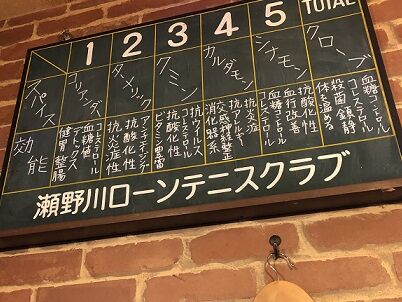 1 2 3 4 5 TOTAL
スパイス
コリアンダー
ターメリック
クミン
カルダモン
シナモン
クローブ
効能
コレステロール
血糖値
デトックス
健胃 整腸
アンチエイジング
抗酸化性
抗炎症性
抗ウイルス
コレステロール
抗酸化性
ビタミン豊富
抗アレルギー
交感神経整正
消化器系
抗炎症
血糖コントロール
コレステロール
抗酸化性
血行改善
血糖コントロール
コレステロール
殺菌 鎮静
体を温める
瀬野川ローンテニスクラブ